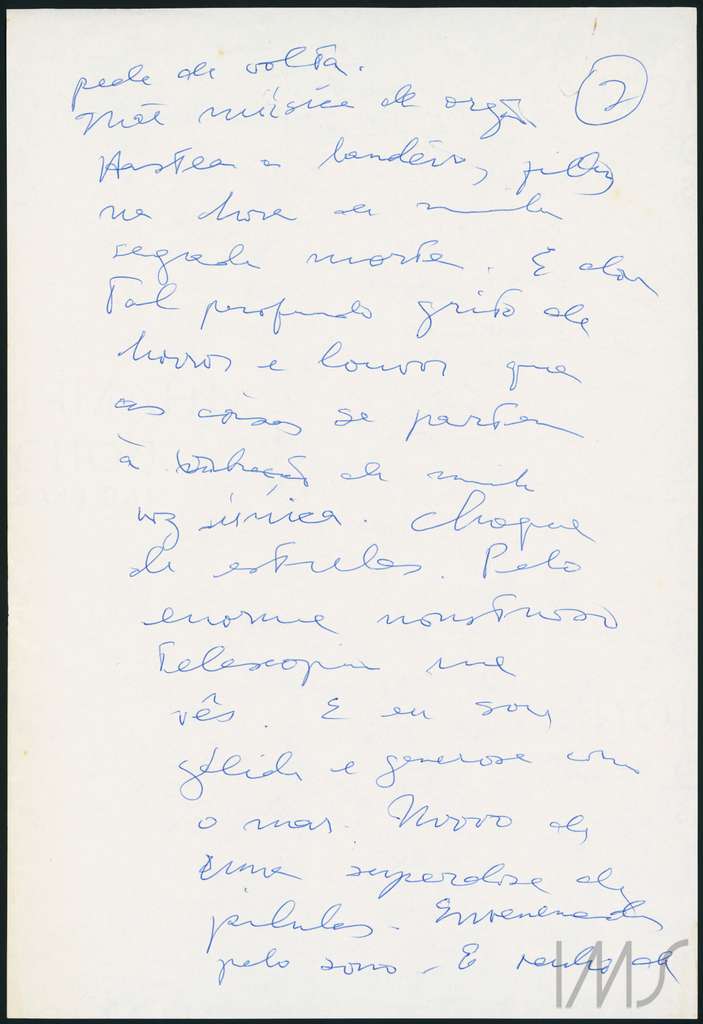 pede de volta.
2
música de orgão
Hastea a bandeira, filho,
na hora de minha
sagrada morte. E dou
tal profundo grito de
horror e louvor que
as coisas se partem
à vibração de minha
voz única. Choque
de estrelas. Pelo
enorme monstruoso
telescópio me
vês. E eu sou
gélida e generosa como
o mar. Morro de
uma superdose de
pílulas. Envenenada
pelo sono. E tenho de
IMS